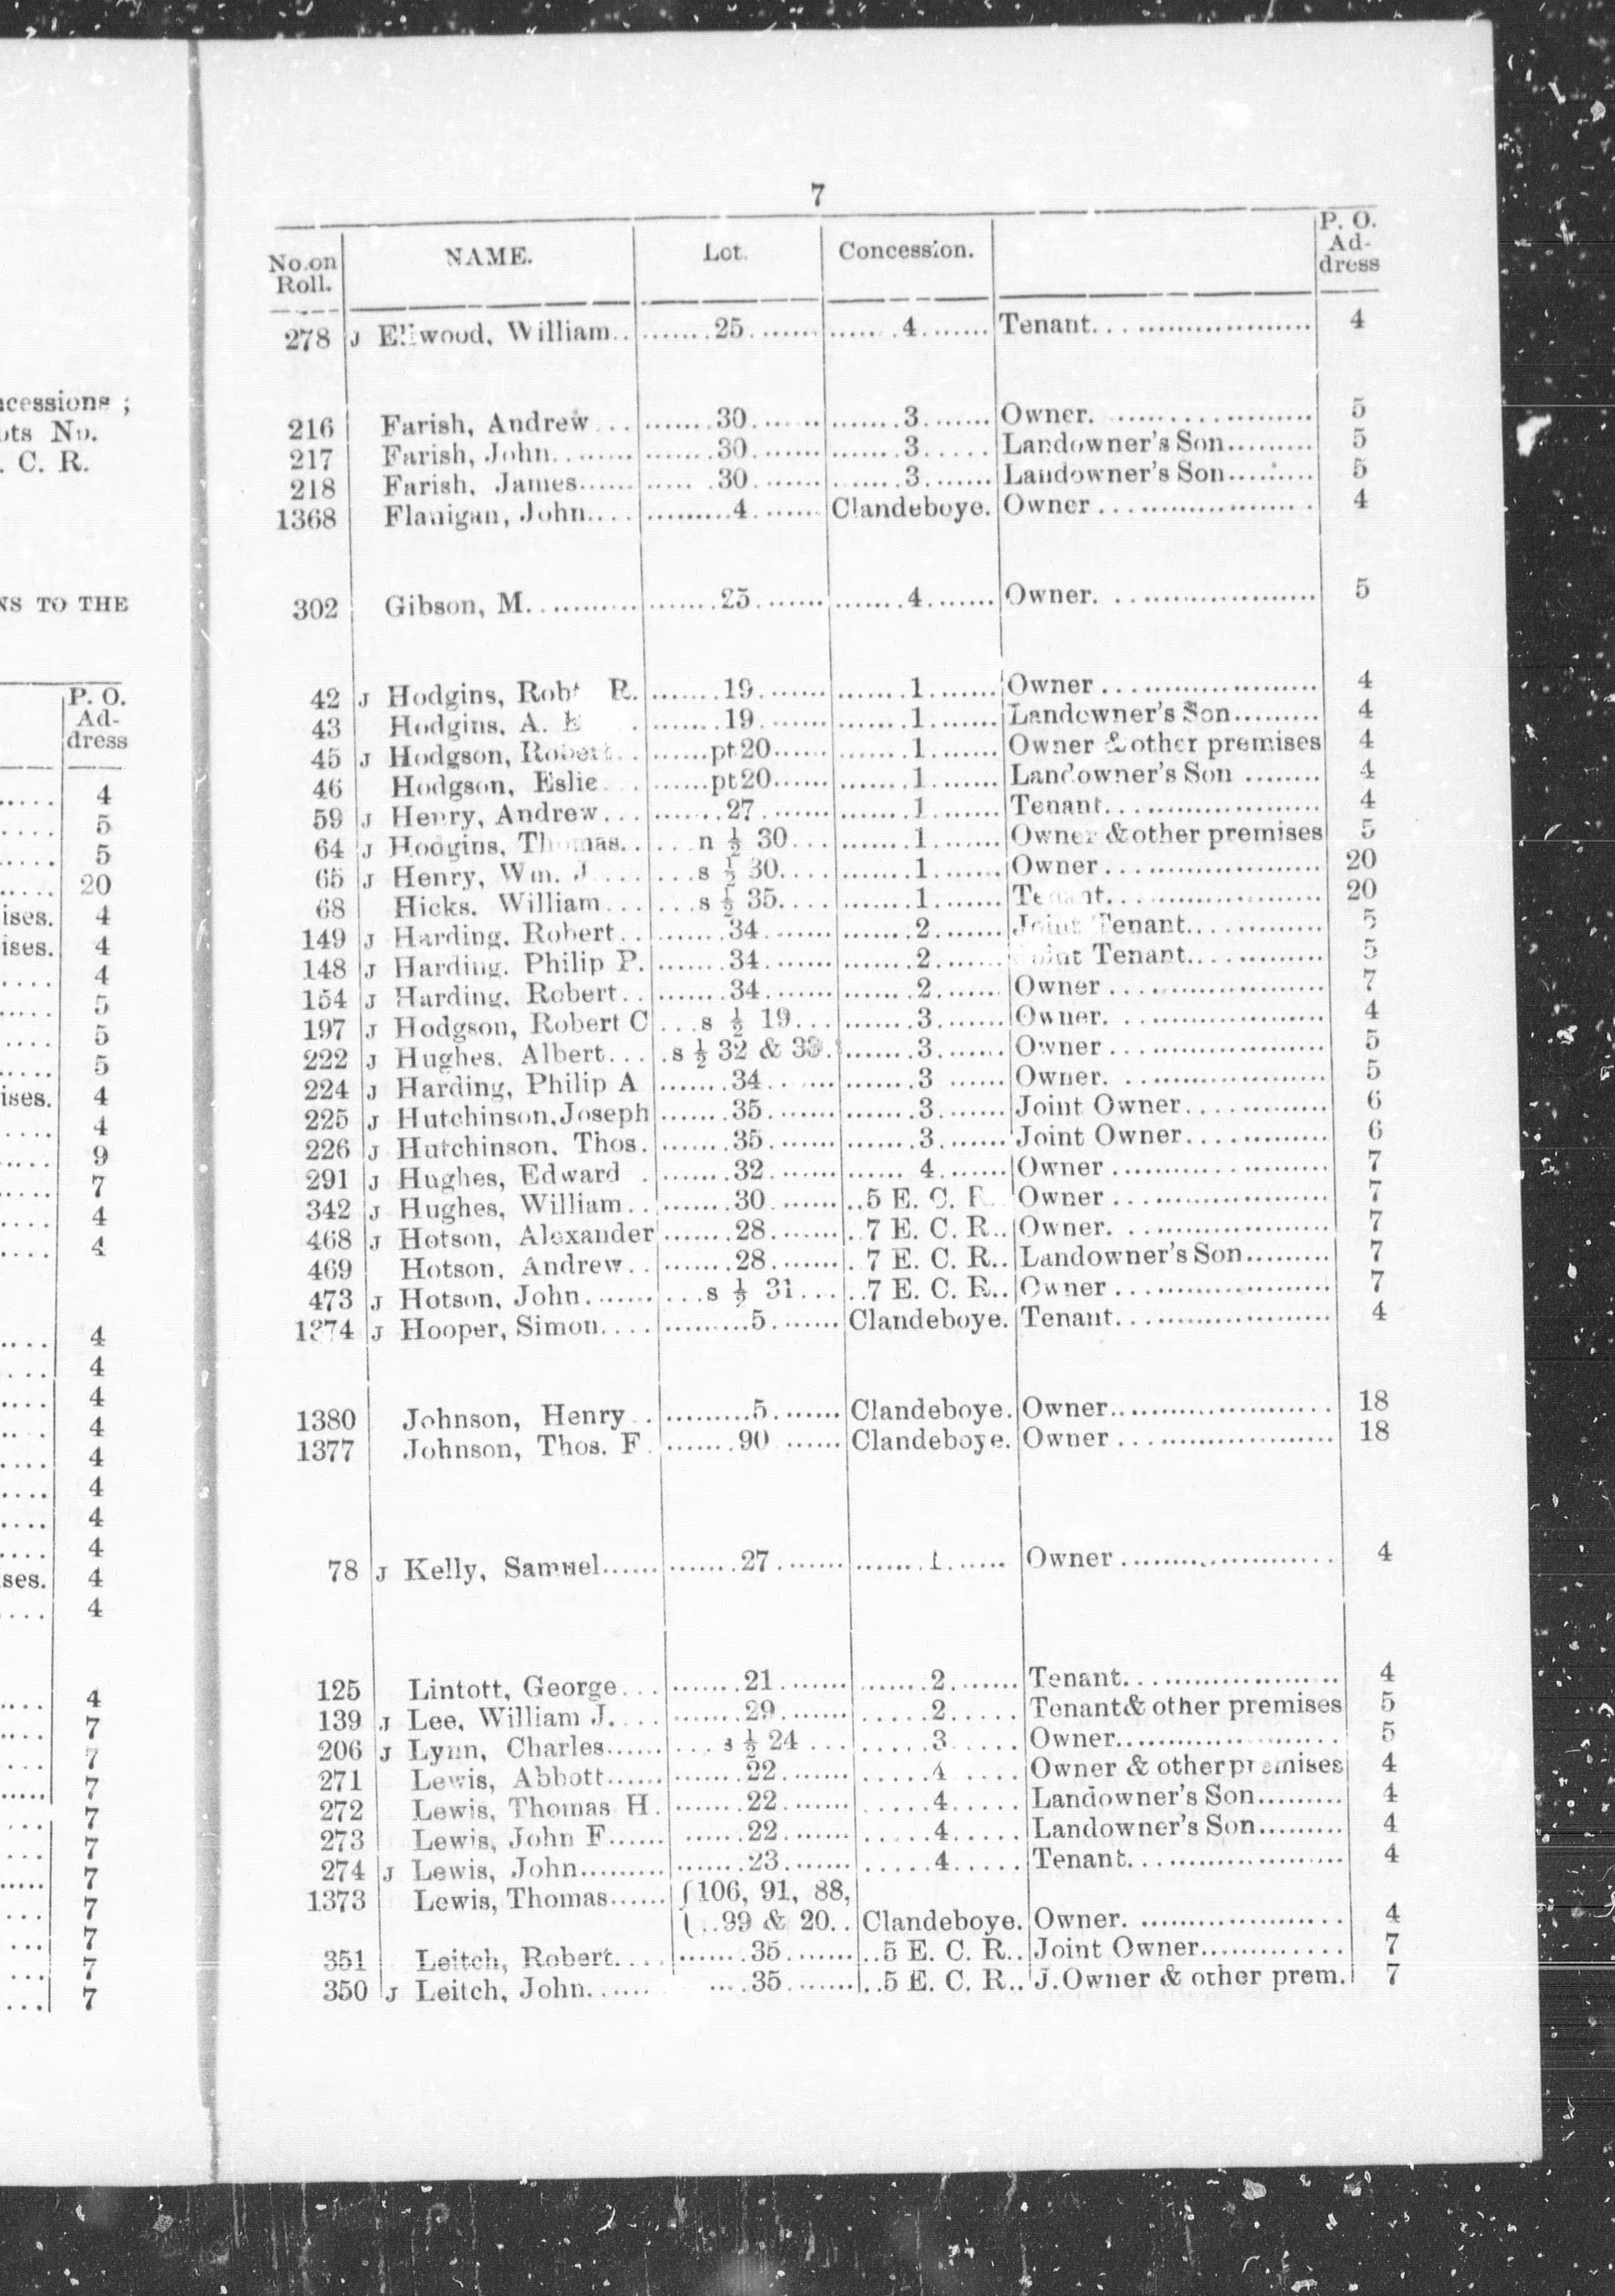 cessions ;
ots No.
. C. R.
NS TO THE
P. O.
Ad-
dress
4
5
5
20
ises. 4
ises. 4
4
5
5
5
ises. 4
4
9
7
4
4
4
4
4
4
4
4
4
4
ses. 4
4
4
7
7
7
7
7
7
7
7
7
7
7
No. on Roll. NAME. Lot. Concession. P. O. Address
278 J Ellwood, William.. 25 4 Tenant 4
216 Farish, Andrew 30 3 Owner 5
217 Farish, John 30 3 Landowner's Son 5
218 Farish, James 30 3 Landowner's Son 5
1368 Flanigan, John 4 Clandeboye. Owner 4
302 Gibson, M. 25 4 Owner 5
42 J Hodgins, Robt R. 19 1 Owner 4
43 Hodgins, A. 19 1 Landowner's Son 4
45 J Hodgson, Robert pt 20 1 Owner & other premises 4
46 Hodgson, Eslie pt 20 1 Landowner's Son 4
59 J Henry, Andrew 27 1 Tenant 4
64 J Hodgins, Thomas n ½ 30 1 Owner & other premises 5
65 J Henry, Wm. J s ½ 30 1 Owner 20
68 Hicks, William s ½ 35 1 Tenant 20
149 J Harding, Robert 34 2 Joint Tenant 5
148 J Harding, Philip P. 34 2 Joint Tenant 5
154 J Harding, Robert 34 2 Owner 7
197 J Hodgson, Robert C s ½ 19 3 Owner 4
222 J Hughes, Albert s ½ 32 & 33 3 Owner 5
224 J Harding, Philip A 34 3 Owner 5
225 J Hutchinson, Joseph 35 3 Joint Owner 6
226 J Hutchinson, Thos. 35 3 Joint Owner 6
291 J Hughes, Edward 32 4 Owner 7
342 J Hughes, William 30 5 E. C. R. Owner 7
468 J Hotson, Alexander 28 7 E. C. R. Owner 7
469 Hotson, Andrew 28 7 E. C. R. Landowner's Son 7
473 J Hotson, John s ½ 31 7 E. C. R. Owner 7
1374 J Hooper, Simon 5 Clandeboye. Tenant 4
1380 Johnson, Henry 5 Clandeboye. Owner 18
1377 Johnson, Thos. F 90 Clandeboye. Owner 18
78 J Kelly, Samuel 27 1 Owner 4
125 Lintott, George 21 2 Tenant 4
139 J Lee, William J. 29 2 Tenant & other premises 5
206 J Lynn, Charles s ½ 24 3 Owner 5
271 Lewis, Abbott 22 4 Owner & other premises 4
272 Lewis, Thomas H. 22 4 Landowner's Son 4
273 Lewis, John F 22 4 Landowner's Son 4
274 J Lewis, John 23 4 Tenant 4
1373 Lewis, Thomas 106, 91, 88,
99 & 20 Clandeboye. Owner 4
351 Leitch, Robert 35 5 E. C. R. Joint Owner 7
350 J Leitch, John 35 5 E. C. R. J. Owner & other prem. 7